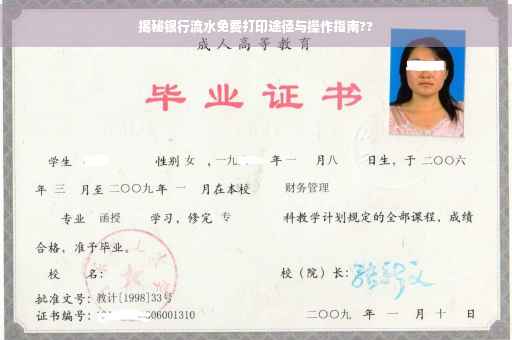 揭秘银行流水免费打印途径与操作指南??
成人高等教育
毕业证书
学生 性别 女 ，一九 年 一 月 八 日生，于 二〇〇六
年 三 月至 二〇〇九 年 一 月在本校 财务管理
专业 函授 学习，修完 专 科教学计划规定的全部课程，成绩
合格，准予毕业。
校 名： 校（院）长：
批准文号：教计[1998]33号
证书编号： 06001310 二〇〇九 年 一 月 十 日